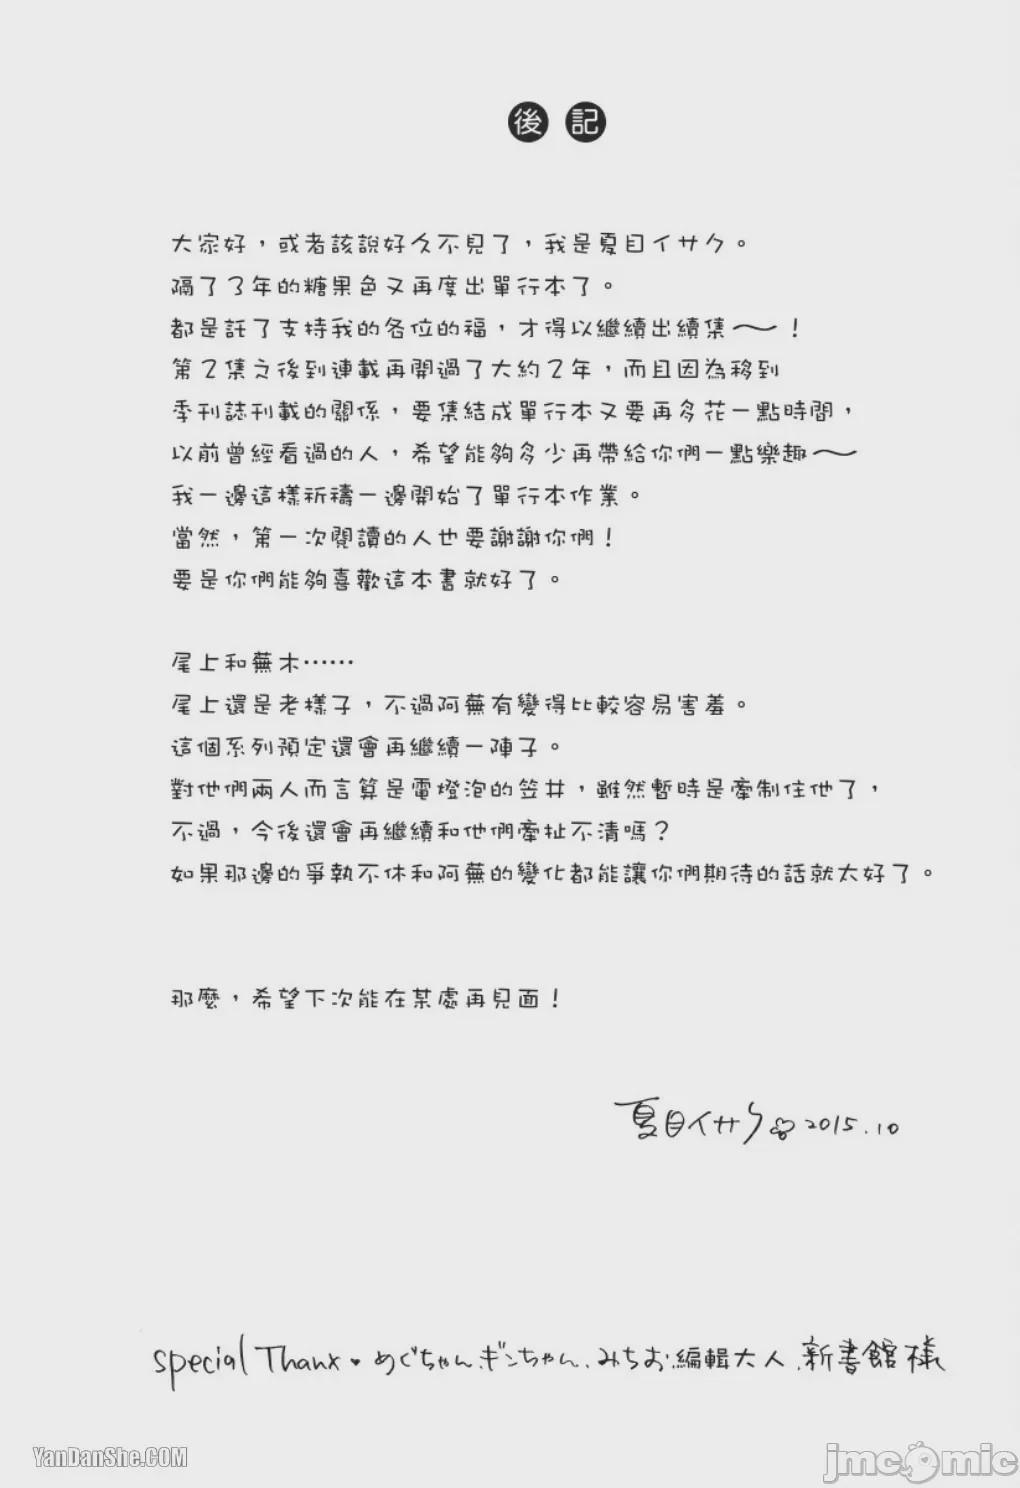 後記
大家好，或者該說好久不見了，我是夏目イサク。
隔了3年的糖果色又再度出單行本了。
都是託了支持我的各位的福，才得以繼續出續集～！
第2集之後到連載再開過了大約2年，而且因為移到
季刊誌刊載的關係，要集結成單行本又要再多花一點時間，
以前曾經看過的人，希望能夠多少再帶給你們一點樂趣～
我一邊這樣祈禱一邊開始了單行本作業。
當然，第一次閱讀的人也要謝謝你們！
要是你們能夠喜歡這本書就好了。
尾上和蕪木……
尾上還是老樣子，不過阿蕪有變得比較容易害羞。
這個系列預定還會再繼續一陣子。
對他們兩人而言算是電燈泡的笠井，雖然暫時是牽制住他了，
不過，今後還會再繼續和他們牽扯不清嗎？
如果那邊的爭執不休和阿蕪的變化都能讓你們期待的話就太好了。
那麼，希望下次能在某處再見面！
夏目イサク 2015.10
special Thanx♥めぐちゃん、ギンちゃん、みちお、編輯大人、新書館樣
YanDanShe.COM
jmcomic